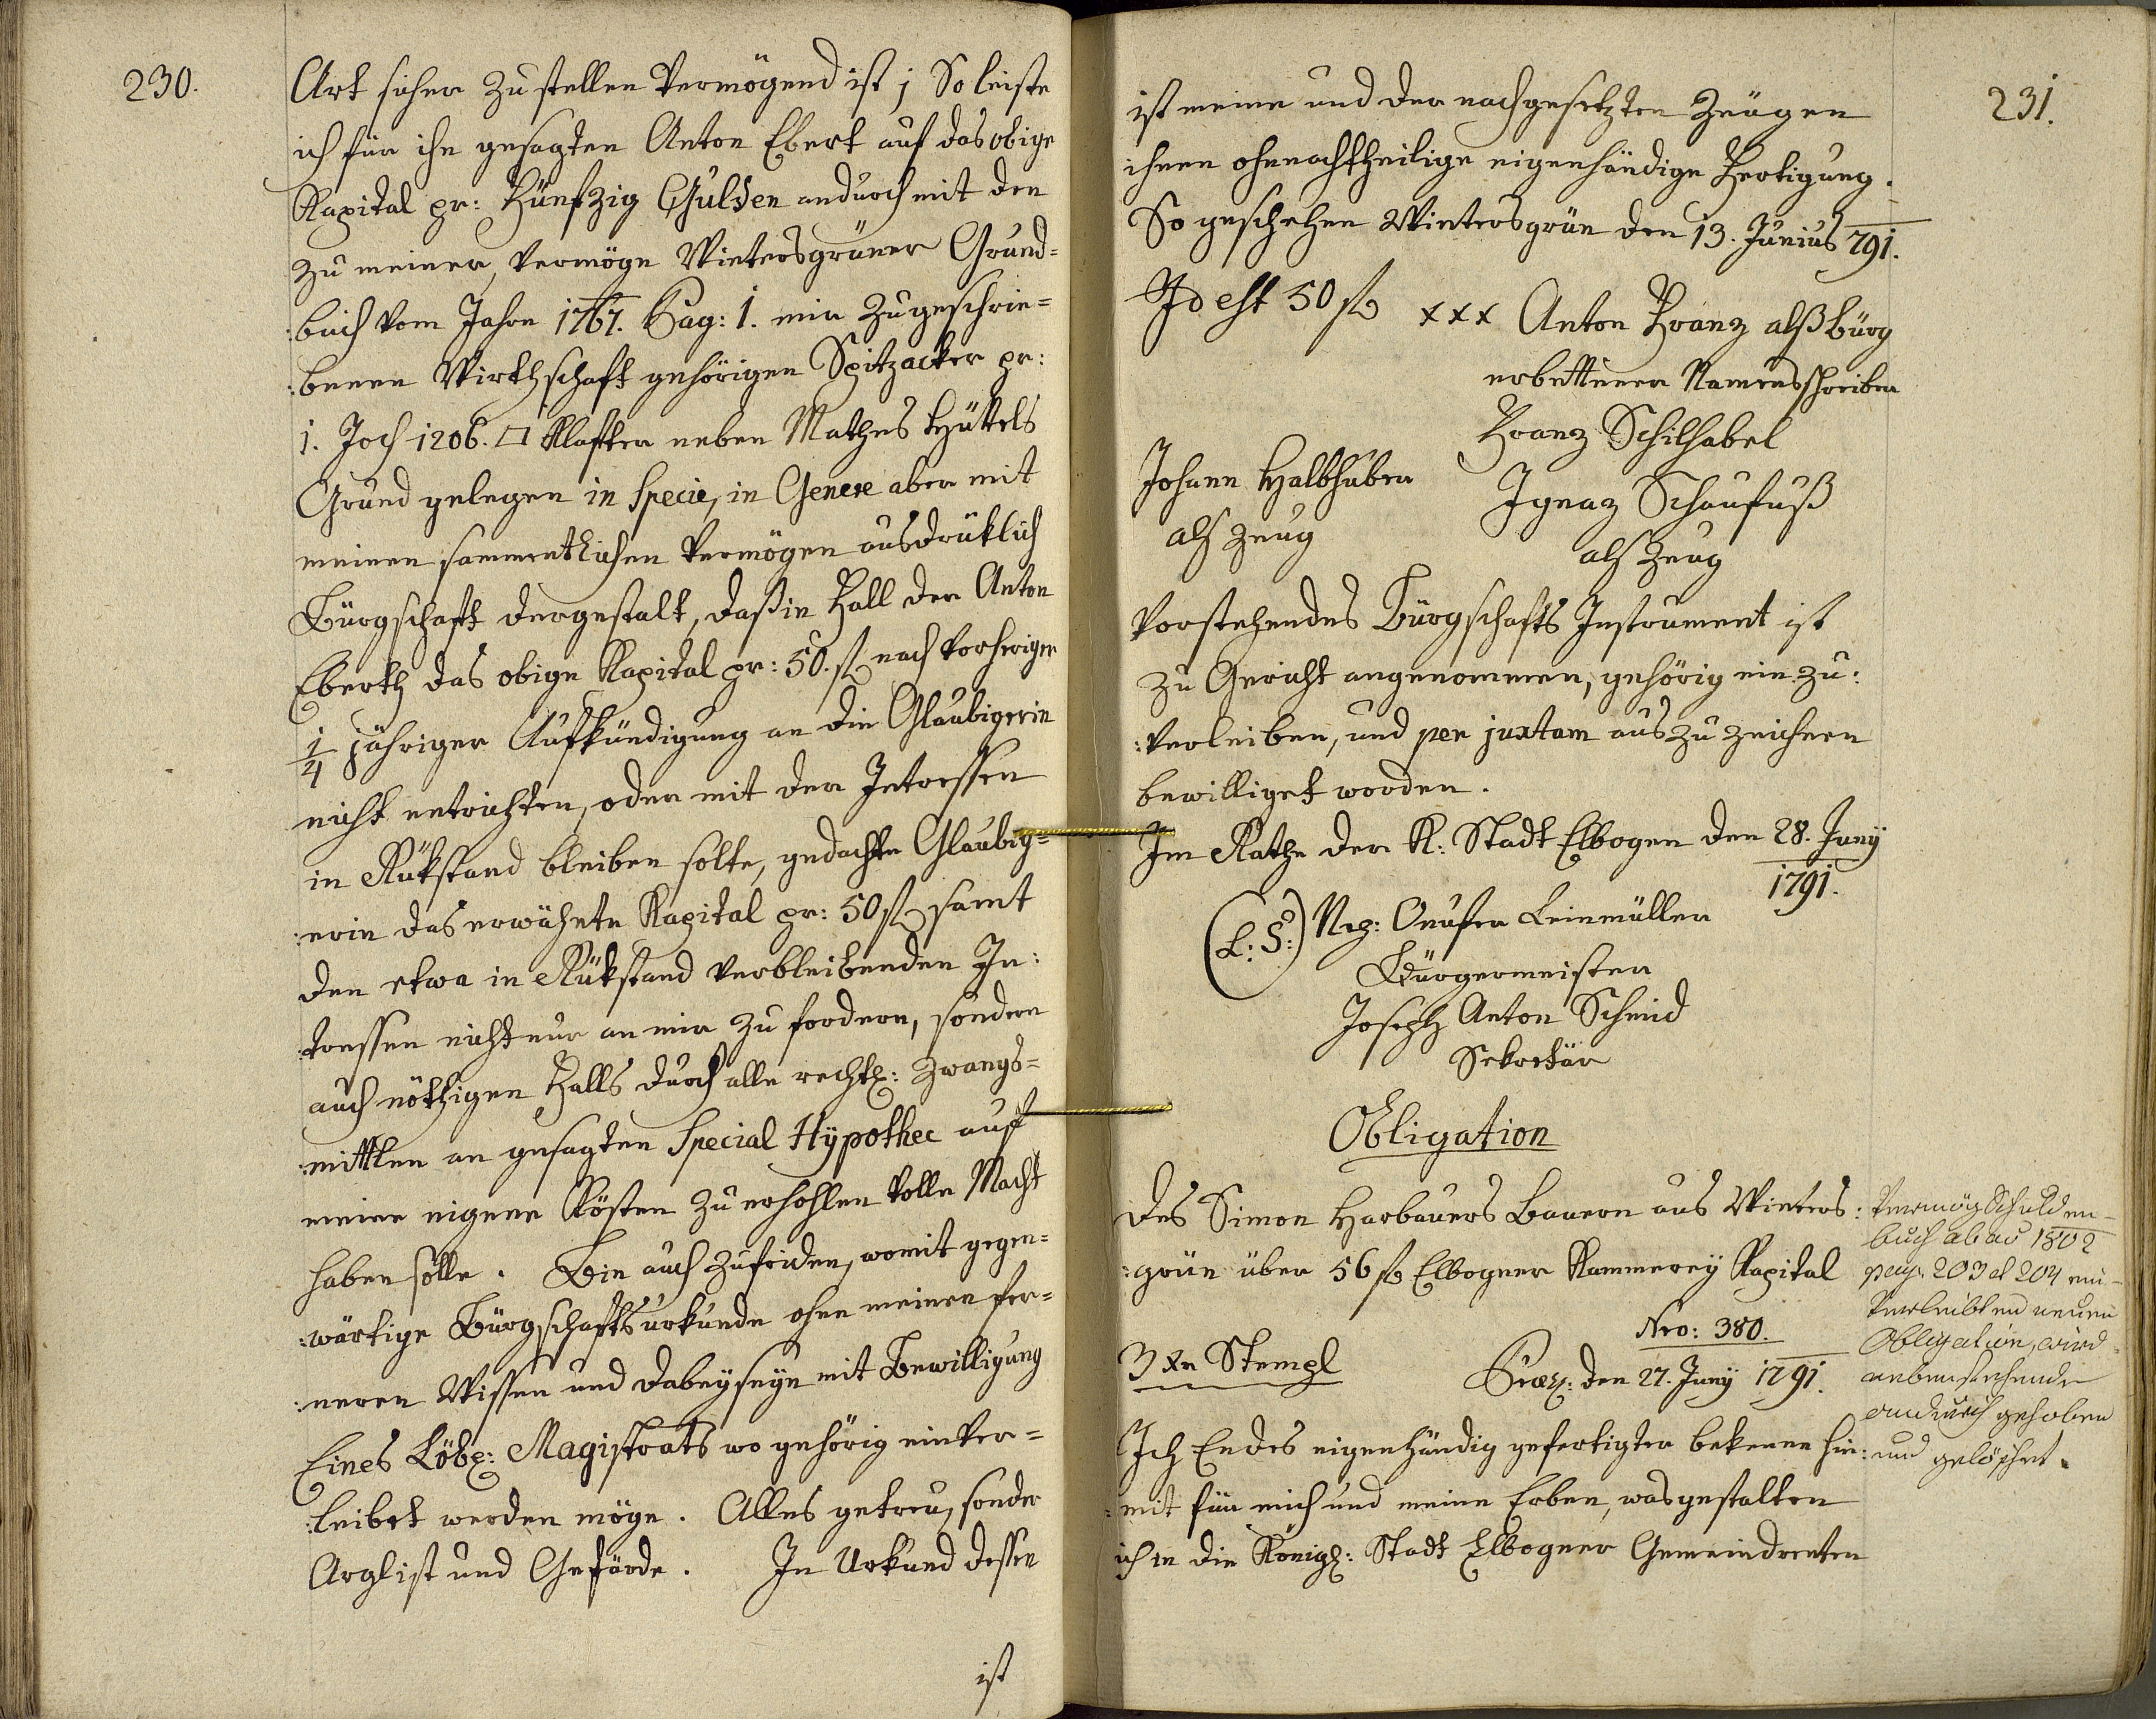 230.
Art sicher zu stellen vermögend ist; So leiste
ich für ihn gesagten Anton Ebert auf das obige
Kapital pr: Fünfzig Gulden andurch mit den
zu meiner, vermöge Wintersgrüner Grund=
:buch vom Jahre 1767. Pag: 1. mir zugeschrie=
:benen Wirthschaft gehörigen Spitzacker pr:
1. Joch 1206. □ Klafter neben Mathes Hüttels
Grund gelegen in Specie, in Genere aber mit
meinen sammentlichen Vermögen ausdrüklich
Bürgschaft dergestalt, daß in Fall der Anton
Eberth das obige Kapital pr: 50. fl nach vorheriger
1/4 jähriger Aufkündigung an die Glaubigerin
nicht entrichten, oder mit der Intressen
in Rükstand bleiben solte, gedachte Glaubig=
:erin das erwähnte Kapital pr: 50 fl samt
den etwa in Rükstand verbleibenden In:
:tressen nicht nur an mir zu fordern, sondern
auch nöthigen Falls durch alle rechtl: Zwangs=
:mittlen an gesagten Special Hÿpothec auf
meine eigene Kösten zu erhohlen volle Macht
haben solle. Bin auch zufriden, womit gegen=
:wärtige Bürgschafts urkunde ohne meinen fer=
:neren Wissen und dabeÿseÿn mit Bewilligung
Eines Löbl: Magistrats wo gehörig einver=
:leibet werden möge. Alles getreu, sonder
Arglist und Gefärde. In Urkund dessen
ist
231.
ist meine und der nachgesetzten Zeugen
ihnen ohnnachtheilige eigenhändige Fertigung.
So geschehen Wintersgrün den 13. Junius 791.
Id est 50 fl xxx Anton Franz alß Bürg
erbettener Namensschreiber
Franz Schilhabel
Johann Halbhuber Ignaz Schaufuß
als Zeug als Zeug
Vorstehendes Bürgschafts Instrument ist
zu Gericht angenommen, gehörig ein zu:
:verleiben, und per juxtam auszuzeichnen
bewilliget worden.
Im Rathe der K: Stadt Elbogen den 28. Junÿ
1791.
(L: S:) Onufer Leinmüller
Bürgermeister
Joseph Anton Schmid
Sekretär
Obligation
Des Simon Harbauers Bauern aus Winters:
:grün über 56 fl Elbogner Kammereÿ Kapital
Nro: 380.
3 xr Stempl Präs: den 27. Junÿ 1791.
Ich Endes eigenhändig gefertigter bekenne hie:
:mit für mich und meine Erben, was gestalten
ich in die Königl: Stadt Elbogner Gemeindrenten
Vermög Schulden-
buch ab ao 1802
pag: 203 et 204 ein-
verleibten neuen
Obligation, wird
nebenstehende
andurch gehoben
und gelöschet.